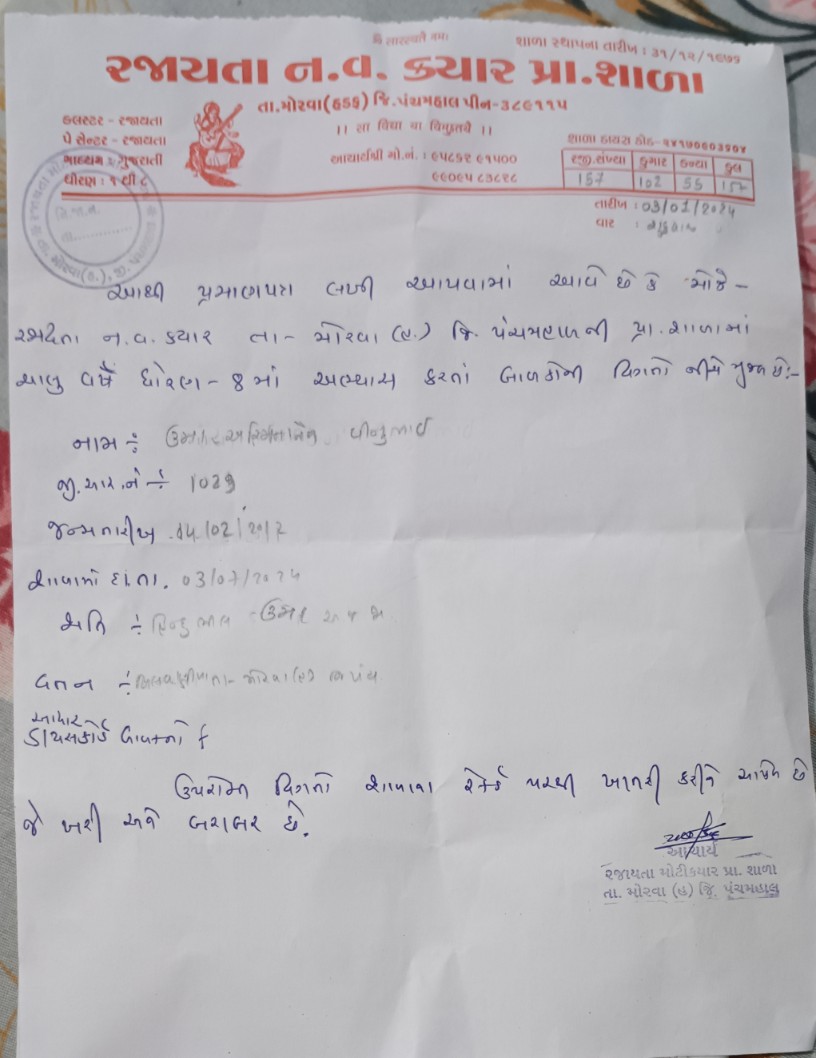 શ્રી સરસ્વતૈ નમઃ
શાળા સ્થાપના તારીખ : ૩૧/૧૨/૧૯૭૭
રજાયતા ન.વ. ક્યાર પ્રા.શાળા
તા.મોરવા(હડફ) જિ.પંચમહાલ પીન-૩૮૯૧૧૫
।। સા વિદ્યા યા વિમુક્તયે ।।
કલસ્ટર - રજાયતા
પે સેન્ટર - રજાયતા
માધ્યમ : ગુજરાતી
ધોરણ : ૧ થી ૮
આચાર્યશ્રી મો.નં. : ૯૫૮૬૨ ૯૧૫૦૦
૯૯૦૯૫ ૮૩૮૨૮
શાળા ડાયસ કોડ-૨૪૧૭૦૬૦૩૬૦૪
રજી.સંખ્યા કુમાર કન્યા કુલ
157 102 55 157
તારીખ : 03/01/2024
વાર :
આથી પ્રમાણપત્ર લખી આપવામાં આવે છે કે મોજે -
ન.વ. ક્યાર તા - મોરવા (હ.) જિ. પંચમહાલની પ્રા. શાળામાં
ચાલુ વર્ષે ધોરણ - 8 માં અભ્યાસ કરતાં બાળકોની વિગતો નીચે મુજબ છે:-
નામ ÷
જી.આર.નં ÷ 1029
જન્મતારીખ 14/02/2012
શાળામાં દા.તા. 03/07/2024
જાતિ ÷ હિન્દુ
વતન ÷
આધાર
ડાયસકોર્ડ
ઉપરોક્ત વિગતો શાળાના રેકર્ડ પરથી ખાતરી કરીને આપેલ છે
જે ખરી અને બરાબર છે.
આચાર્ય
રજાયતા મોટીક્યાર પ્રા. શાળા
તા. મોરવા (હ) જિ. પંચમહાલ